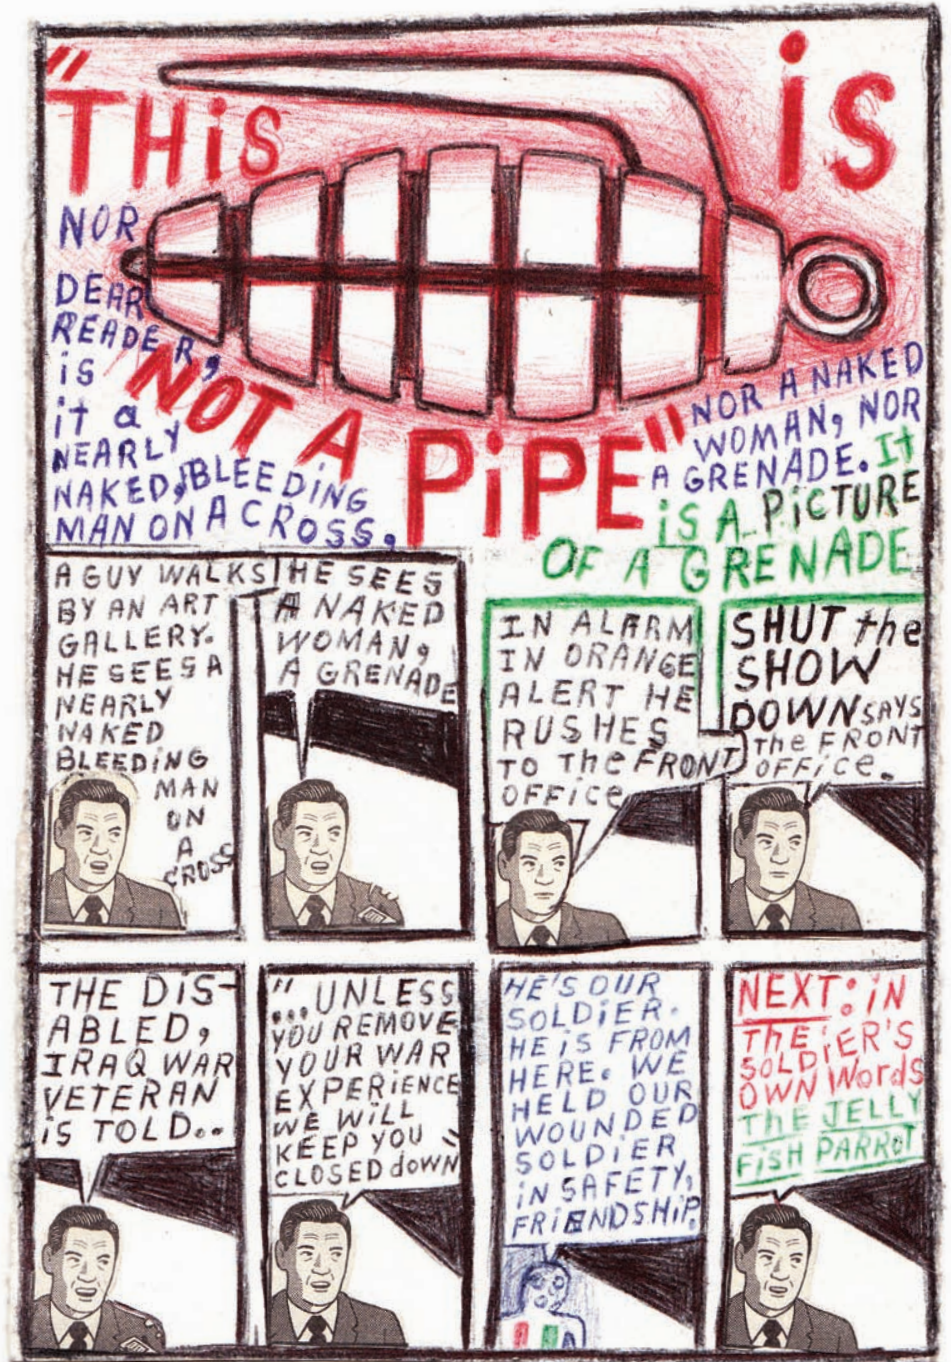 "THiS iS
NOR
DEAR
READER,
iS
it a
NEARLY
NAKED, BLEEDiNG
MAN ON A CROSS,
"NOT A PiPE"
NOR A NAKED
WOMAN, NOR
A GRENADE. It
iS A PiCTURE
OF A GRENADE
A GUY WALKS
BY AN ART
GALLERY.
HE SEES A
NEARLY
NAKED
BLEEDiNG
MAN
ON
A
CROSS
HE SEES
A NAKED
WOMAN,
A GRENADE
IN ALARM
IN ORANGE
ALERT HE
RUSHES
TO The FRONT
OFFiCE
SHUT the
SHOW
DOWN SAYS
The FRONT
OFFiCE.
THE DiS-
ABLED,
IRAQ WAR
VETERAN
iS TOLD..
"...UNLESS
YOU REMOVE
YOUR WAR
EXPERiENCE
WE WiLL
KEEP YOU
CLOSED dOWN"
HE'S OUR
SOLDiER.
HE iS FROM
HERE. WE
HELD OUR
WOUNDED
SOLDiER
iN SAFETY,
FRiENDSHiP.
NEXT: iN
THE
SOLDiER'S
OWN Words
THE JELLY
FiSH PARROT